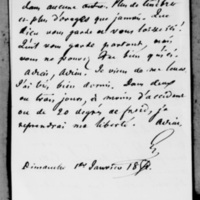 dans aucune autre. Plus de ténèbres
et plus d'orages que jamais. Que
Dieu vous garde en vous
vous garde pourtant, mais
vous ne pouvez que bien qu'à
Adieu, Adieu. Je viens de me lever
J'ai très bien dormi. Dans deux
ou trois jours, à moins d'accident
ou de 20 degrés de froid, je
reprendrai ma liberté. Adieu.
G
Dimanche 1er Janvier